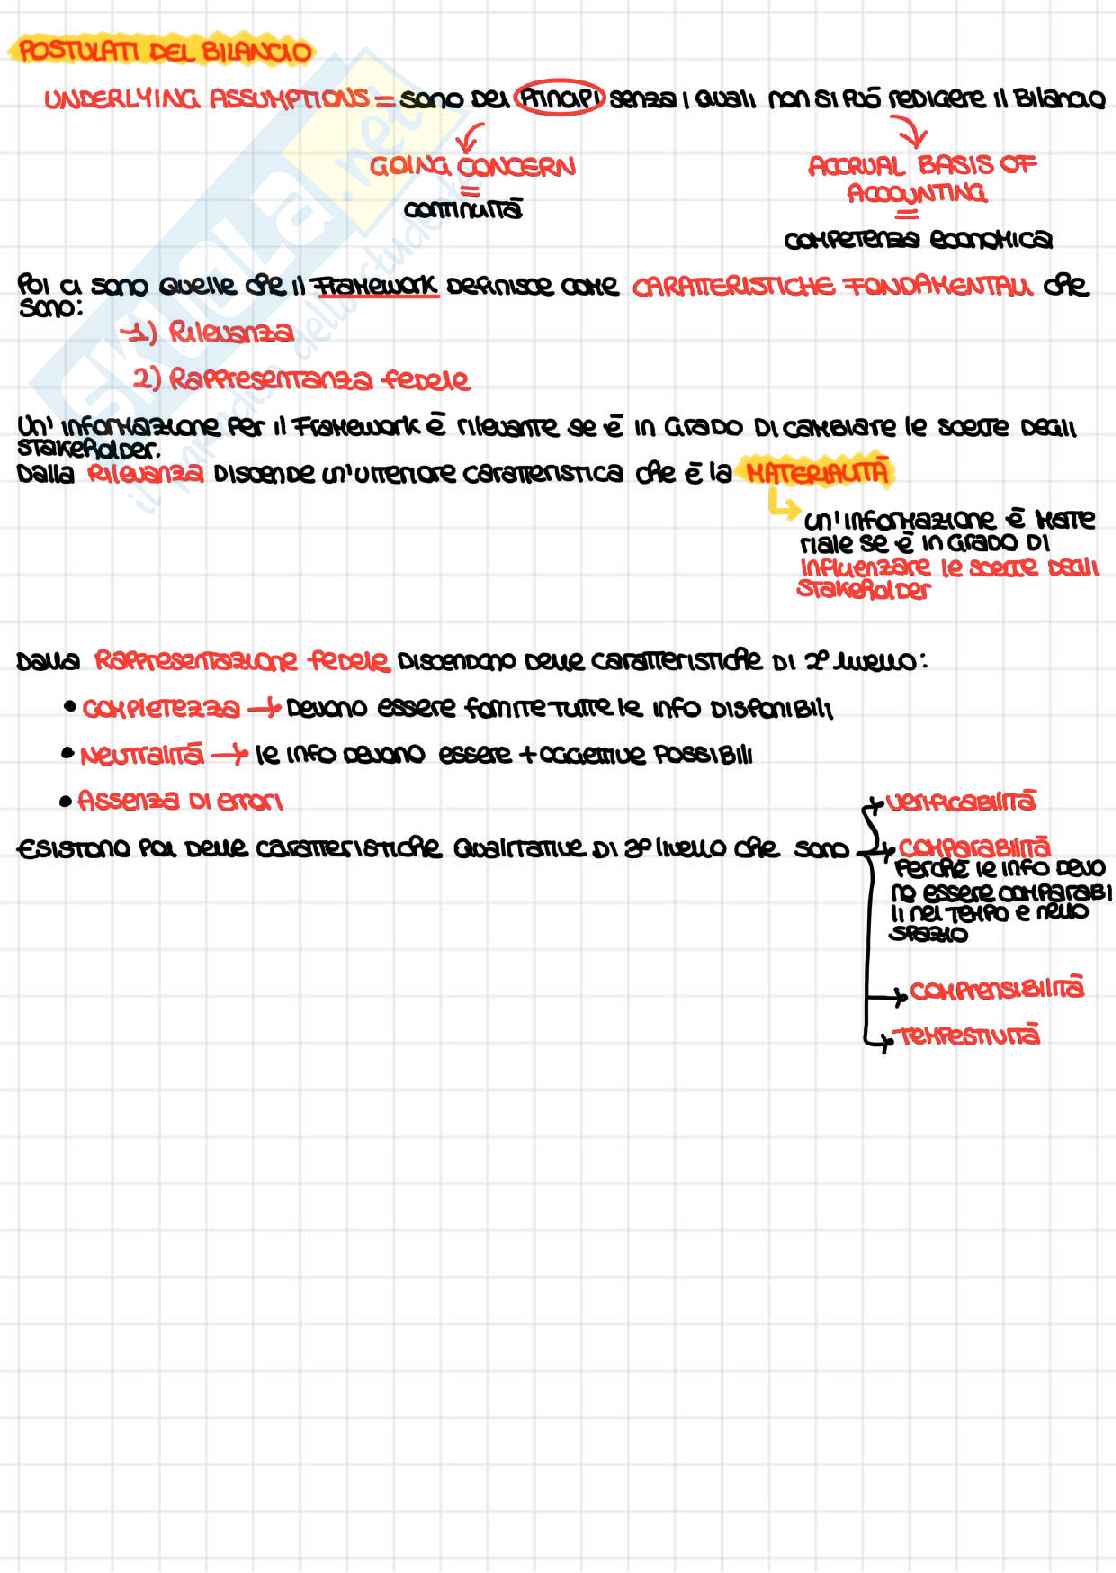 POSTULATI DEL BILANCIO
UNDERLYING ASSUMPTIONS = sono dei Principi senza i quali non si può redigere il Bilancio
GOING CONCERN
=
continuità
ACCRUAL BASIS OF
ACCOUNTING
=
competenza economica
Poi ci sono quelle che il Framework definisce come CARATTERISTICHE FONDAMENTALI che
sono:
1) Rilevanza
2) Rappresentanza fedele
Un'informazione per il Framework è rilevante se è in grado di cambiare le scelte degli
stakeholder.
Dalla Rilevanza discende un'ulteriore caratteristica che è la MATERIALITÀ
un'informazione è mate
riale se è in grado di
influenzare le scelte degli
stakeholder
Dalla Rappresentazione fedele discendono delle caratteristiche di 2º livello:
• completezza → devono essere fornite tutte le info disponibili
• Neutralità → le info devono essere + oggettive possibili
• Assenza di errori
Esistono poi delle caratteristiche qualitative di 2º livello che sono
verificabilità
comparabilità
perché le info devo
no essere comparabi
li nel tempo e nello
spazio
comprensibilità
Tempestività
skuola.net